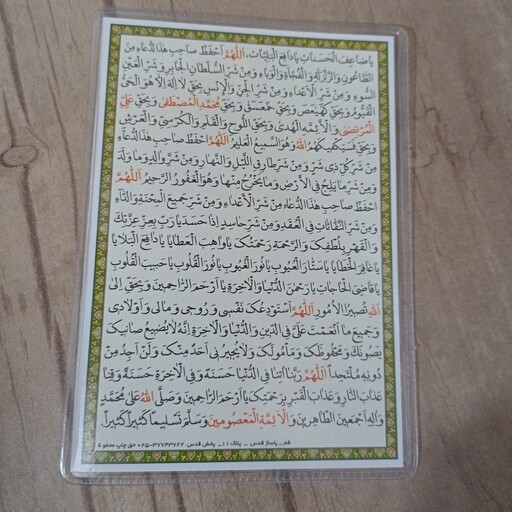 یا ضاعِفَ الْحَسَناتِ یا دافِعَ الْبَلِیّاتِ، اَللّهُمَّ احْفَظْ صاحِبَ هٰذَا الدُّعاءِ مِنَ
الطّاعُونِ وَالزَّلْزَلَةِ وَالْفَجْأَةِ وَالْوَباءِ وَمِنْ شَرِّ السُّلْطانِ الْجائِرِ وَشَرِّ الْعَیْنِ
السُّوءِ وَمِنْ شَرِّ الْاَعْداءِ وَمِنْ شَرِّ الْجِنِّ وَالْاِنْسِ بِحَقِّ لا اِلٰهَ اِلّا هُوَ الْحَیُّ
الْقَیُّومُ وَبِحَقِّ کهیعص وَبِحَقِّ حمعسق وَبِحَقِّ مُحَمَّدٍ الْمُصْطَفی وَبِحَقِّ عَلِیٍّ
الْمُرْتَضی وَالْاَئِمَّةِ الْهُدی وَبِحَقِّ اللَّوْحِ وَالْقَلَمِ وَالْکُرْسِیِّ وَالْعَرْشِ
وَبِحَقِّ فَسَیَکْفیکَهُمُ اللهُ وَهُوَ السَّمیعُ الْعَلیمُ اَللّهُمَّ احْفَظْ صاحِبَ هٰذَا الدُّعاءِ
مِنْ شَرِّ کُلِّ ذی شَرٍّ وَمِنْ شَرِّ طارِقِ اللَّیْلِ وَالنَّهارِ وَمِنْ شَرِّ والِدٍ وَما وَلَدَ
وَمِنْ شَرِّ ما یَلِجُ فِی الْاَرْضِ وَما یَخْرُجُ مِنْها وَهُوَ الْغَفُورُ الرَّحیمُ اَللّهُمَّ
احْفَظْ صاحِبَ هٰذَا الدُّعاءِ مِنْ شَرِّ الْاَعْداءِ وَمِنْ شَرِّ جَمیعِ الْمِحْنَةِ وَالدّاءِ
وَمِنْ شَرِّ النَّفّاثاتِ فِی الْعُقَدِ وَمِنْ شَرِّ حاسِدٍ اِذا حَسَدَ یا رَبِّ بِعِزِّ عِزَّتِکَ
وَالْقَهْرِ بِلُطْفِکَ وَالرَّحْمَةِ وَرَحْمَتِکَ یا واهِبَ الْعَطایا یا دافِعَ الْبَلایا
یا غافِرَ الْخَطایا یا سَتّارَ الْعُیُوبِ یا نُورَ الْغُیُوبِ یا نُورَ الْقُلُوبِ یا حَبیبَ الْقُلُوبِ
یا قاضِیَ الْحاجاتِ یا رَحْمٰنَ الدُّنْیا وَالْاٰخِرَةِ یا اَرْحَمَ الرّاحِمینَ وَبِحَقِّ اِلَی
اللهِ تَصیرُ الْاُمُورُ اَللّهُمَّ اَسْتَوْدِعُکَ نَفْسی وَرُوحی وَمالی وَاَوْلادی
وَجَمیعَ ما اَنْعَمْتَ عَلَیَّ فِی الدّینِ وَالدُّنْیا وَالْاٰخِرَةِ اِنَّهُ لا یَضیعُ صانِیکَ
بِصَوْنِکَ وَمَحْفُوظِکَ وَمَأْمُولِکَ وَلا یُجیرُنی اَحَدٌ مِنْکَ وَلَنْ اَجِدَ مِنْ
دُونِهِ مُلْتَحَداً اَللّهُمَّ رَبَّنا اٰتِنا فِی الدُّنْیا حَسَنَةً وَفِی الْاٰخِرَةِ حَسَنَةً وَقِنا
عَذابَ النّارِ وَعَذابَ الْقَبْرِ بِرَحْمَتِکَ یا اَرْحَمَ الرّاحِمینَ وَصَلَّی اللهُ عَلی مُحَمَّدٍ
وَاٰلِهِ اَجْمَعینَ الطّاهِرینَ وَالْاَئِمَّةِ الْمَعْصُومینَ وَسَلَّمَ تَسْلیماً کَثیراً کَثیراً.
قم _ پاساژ قدس _ پلاک ۱۱ _ پخش قدس ۳۷۷۴۳۷۲۲-۰۲۵ حق چاپ محفوظ